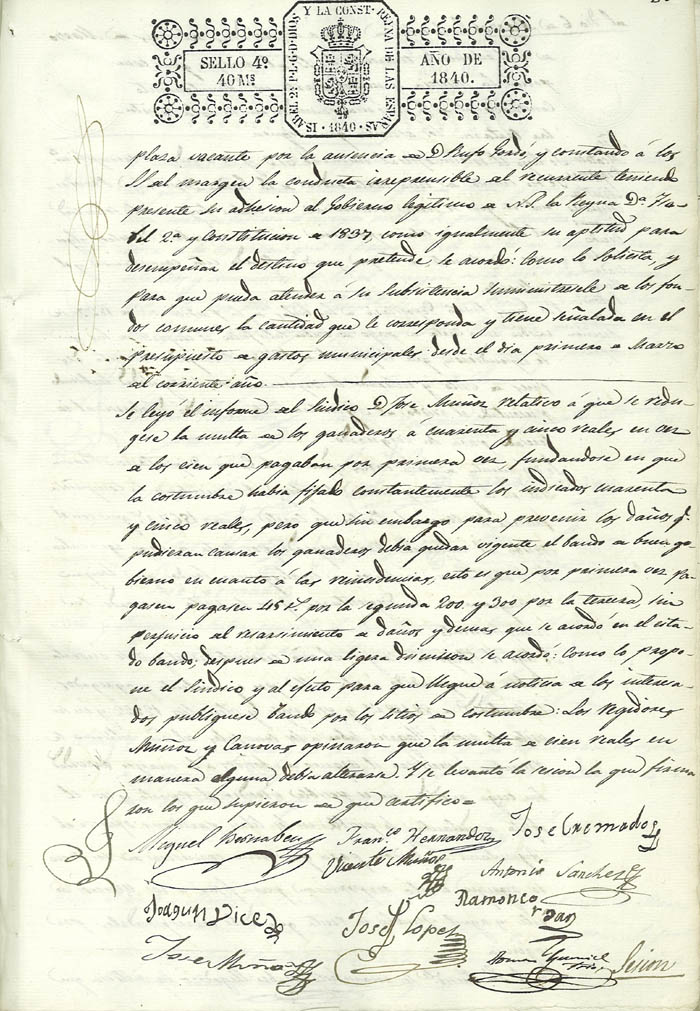 ISABEL 2ª P. L. G. D. DIOS Y LA CONST. REYNA DE LAS ESPAÑAS
1840
SELLO 4º
40 Ms
AÑO DE
1840.
plaza vacante por la ausencia de D. Rufo Gordó, y constando á los
SS. del margen la conducta irreprensible del recurrente teniendo
presente su adhesion al Gobierno legitimo de N.S. la Reyna Dª Isa-
bel 2ª y Constitucion de 1837, como igualmente su aptitud para
desempeñar el destino que pretende se acordó: Como lo solicita, y
para que pueda atender á su subsistencia suministresele de los fon-
dos comunes la cantidad que le corresponda y tiene señalada en el
presupuesto de gastos municipales desde el dia primero de Marzo
del corriente año.
Se leyó el informe del Sindico D. Jose Muñoz relativo á que se redu-
gese la multa de los ganaderos á cuarenta y cinco reales en vez
de los cien que pagaban por primera vez, fundandose en que
la costumbre habia fijado constantemente los indicados cuarenta
y cinco reales, pero que sin embargo para prevenir los daños q.
pudieran causar los ganaderos debia quedar vigente el bando de buen go-
bierno en cuanto á las reincidencias, esto es que por primera vez pa-
gasen pagasen 45 r. por la segunda 200 y 300 por la tercera, sin
perjuicio del resarcimiento de daños y demas que se acordó en el cita-
do bando; despues de una ligera discusion se acordó: Como lo propo-
ne el Sindico y al efecto para que llegue á noticia de los interesa-
dos publiquese bando por los sitios de costumbre: Los Regidores
Muñoz y Canovas opinaron que la multa de cien reales en
manera alguna debia alterarse. Y se levantó la sesion la que firma-
ron los que supieron de que certifico=
Miguel Bernabeu
Franco Hernandez
Jose Cremades
Vicente Muñoz
Antonio Sanchez
Joaquin Dicez
Jose Lopez
Ramon
Jose Muñoz
Sesion